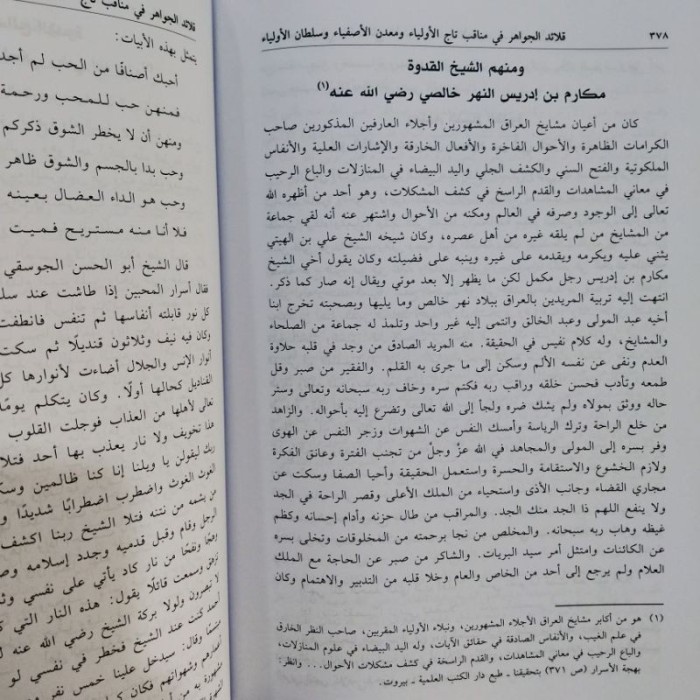 ٣٧٨ قلائد الجواهر في مناقب تاج الأولياء ومعدن الأصفياء وسلطان الأولياء
ومنهم الشيخ القدوة
مكارم بن إدريس النهر خالصي رضي الله عنه(١)
كان من أعيان مشايخ العراق المشهورين وأجلاء العارفين المذكورين صاحب
الكرامات الظاهرة والأحوال الفاخرة والأفعال الخارقة والإشارات العلية والأنفاس
الملكوتية والفتح السني والكشف الجلي واليد البيضاء في المنازلات والباع الرحيب
في معاني المشاهدات والقدم الراسخ في كشف المشكلات، وهو أحد من أظهره الله
تعالى إلى الوجود وصرفه في العالم ومكنه من الأحوال واشتهر عنه أنه لقي جماعة
من المشايخ من لم يلقه غيره من أهل عصره، وكان شيخه الشيخ علي بن الهيتي
يثني عليه ويكرمه ويقدمه على غيره وينبه على فضيلته وكان يقول أخي الشيخ
مكارم بن إدريس رجل مكمل لكن ما يظهر إلا بعد موتي ويقال إنه صار كما ذكر.
انتهت إليه تربية المريدين بالعراق ببلاد نهر خالص وما يليها وبصحبته تخرج ابنا
أخيه عبد المولى وعبد الخالق وانتمى إليه غير واحد وتلمذ له جماعة من الصلحاء
والمشايخ، وله كلام نفيس في الحقيقة. منه المريد الصادق من وجد في قلبه حلاوة
العدم ونفى عن نفسه الألم وسكن إلى ما جرى به القلم. والفقير من صبر وقل
طمعه وتأدب فحسن خلقه وراقب ربه فكتم سره وخاف ربه سبحانه وتعالى وستر
حاله ووثق بمولاه ولم يشك ضره ولجأ إلى الله تعالى وتضرع إليه بأحواله. والزاهد
من خلع الراحة وترك الرياسة وأمسك النفس عن الشهوات وزجر النفس عن الهوى
وفر بسره إلى المولى والمجاهد في الله عزّ وجلّ من تجنب الفترة وعانق الفكرة
ولازم الخشوع والاستقامة والحسرة واستعمل الحقيقة وأحيا الصفا وسكت عن
مجاري القضاء وجانب الأذى واستحياء من الملك الأعلى وقصر الراحة في الجد
ولا ينفع اللهم ذا الجد منك الجد. والمراقب من طال حزنه وأدام إحسانه وكظم
غيظه وهاب ربه سبحانه. والمخلص من نجا برحمته من المخلوقات وتخلى بسره
عن الكائنات وامتثل أمر سيد البريات. والشاكر من صبر عن الحاجة مع الملك
العلام ولم يرجع إلى أحد من الخاص والعام وخلا قلبه من التدبير والاهتمام وكان
(١) هو من أكابر مشايخ العراق الأجلاء المشهورين، ونبلاء الأولياء المقربين، صاحب النظر الخارق
في علم الغيب، والأنفاس الصادقة في حقائق الآيات، وله اليد البيضاء في علوم المنازلات،
والباع الرحيب في معاني المشاهدات، والقدم الراسخة في كشف مشكلات الأحوال... وانظر:
بهجة الأسرار (ص ٣٧١) بتحقيقنا - طبع دار الكتب العلمية - بيروت.
قلائد الجواهر في مناقب تاج
يتمثل بهذه الأبيات:
أحبك أصنافًا من الحب لم أجد
فمنهن حب للمحب ورحمة
ومنهن أن لا يخطر الشوق ذكركم
وحب بدا بالجسم والشوق ظاهر
وحب هو الداء العضال بعينه
فلا أنا منه مستريح فميت
قال الشيخ أبو الحسن الجوسقي
فقال أسرار المحبين إذا طاشت عند
كل نور قابلته أنفاسها ثم تنفس فانطفت
وكان فيه نيف وثلاثون قنديلًا ثم سكت
أنوار الإنس والجلال أضاءت لأنوارها
القناديل كحالها أولًا. وكان يتكلم يومًا
تعالى لأهلها من العذاب فوجلت القلوب
هذا تخويف ولا نار يعذب بها أحد فتلا
ربك ليقولن يا ويلنا إنا كنا ظالمين
الغوث الغوث واضطرب اضطرابًا شديدًا
من يشمه من نتنه فتلا الشيخ ربنا اكشف
الرجل وقام وقبل قدميه وجدد إسلامه
نار كاد يأتي على نفسي
وسمعت قائلًا يقول: هذه النار التي
لا تبصرون ولولا بركة الشيخ رضي الله عنه
كنت عند الشيخ فخطر في نفسي لو
وقال: سيدخل علينا خمس نفر